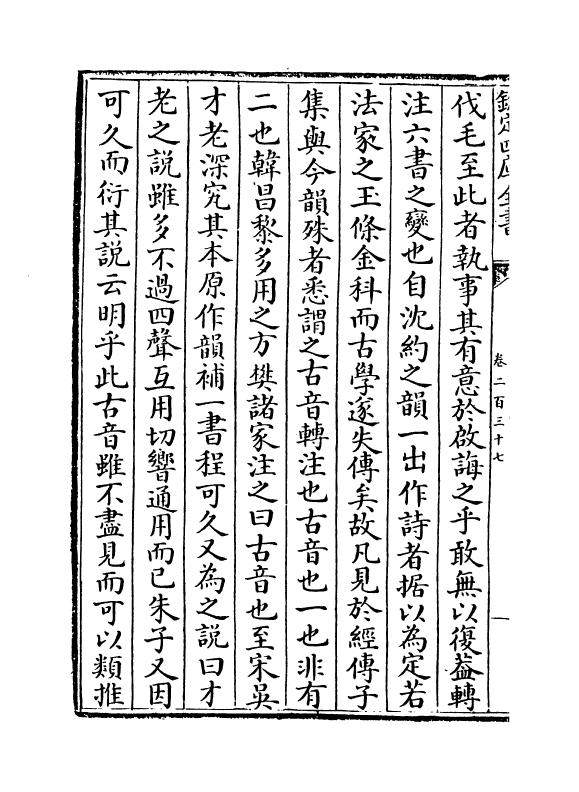 欽定四庫全書
卷二百三十七
伐毛至此者執事其有意於啟誨之乎敢無以復葢轉
注六書之變也自沈約之韻一出作詩者据以為定若
法家之玉條金科而古學遂失傳矣故凡見於經傳子
集與今韻殊者悉謂之古音轉注也古音也一也非有
二也韓昌黎多用之方樊諸家注之曰古音也至宋吳
才老深究其本原作韻補一書程可久又為之說曰才
老之說雖多不過四聲互用切響通用而已朱子又因
可久而衍其說云明乎此古音雖不盡見而可以類推